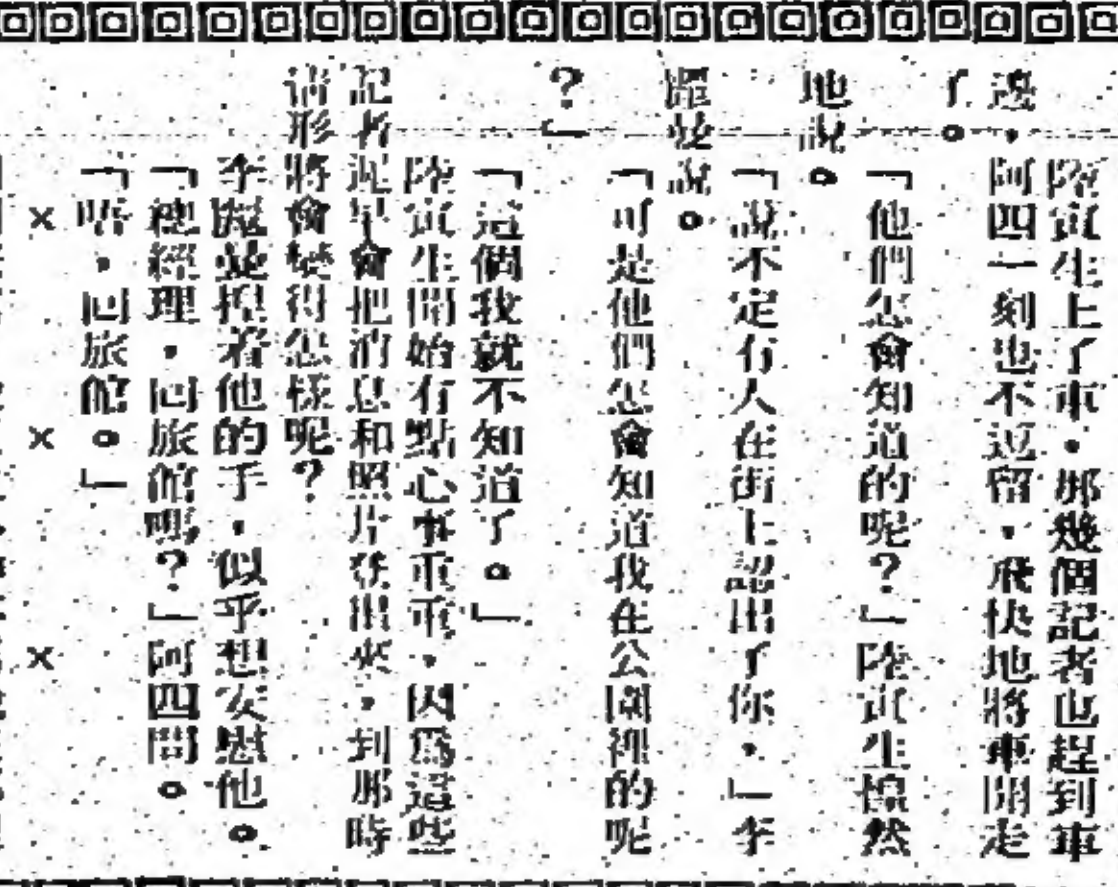 陸寅生上了車,那幾個記者也趕到車
邊,阿四一刻也不逗留,飛快地將車開走
了。
「他們怎會知道的呢?」陸寅生愕然
地說。
「說不定有人在街上認出了你,」李
說。
「可是他們怎會知道我在公園裡的呢
?」
「這個我就不知道了。」
陸寅生開始有點心事重重,因爲這些
記者遲早會把消息和照片發出來,到那時
情形將會變得怎樣呢?
李捏着他的手,似乎想安慰他。
「總經理,回旅館嗎?」阿四問。
「唔,回旅館。」
× × ×